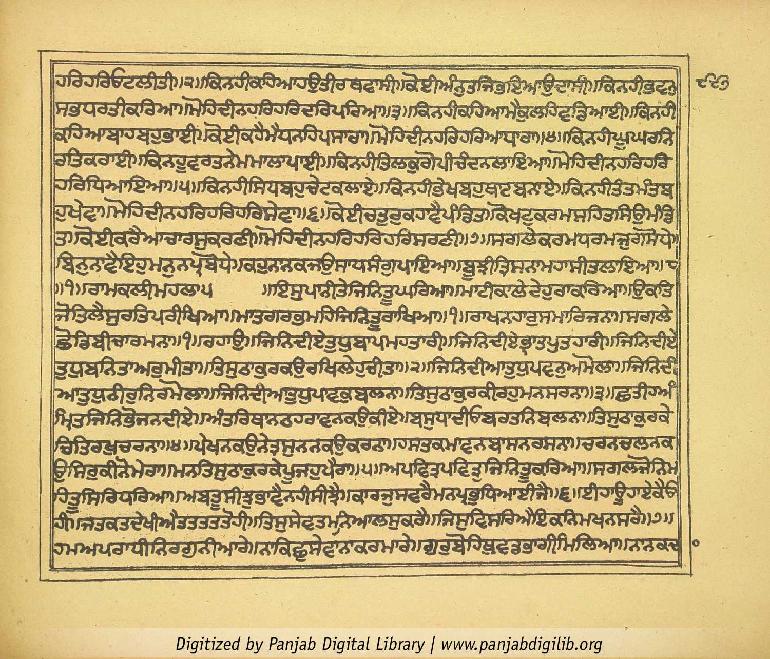 ਹਰਿਹਰਿਓਟਲੀਤੀ॥੨॥ਕਿਨਹੀਕਹਿਆਹਉਤੀਰਥਵਾਸੀ॥ਕੋਈਅੰਨੁਤਜਿਭਇਆਉਦਾਸੀ॥ਕਿਨਹੀਭਵਨੁ
ਸਭਧਰਤੀਕਰਿਆ॥ਮੋਹਿਦੀਨਹਰਿਹਰਿਦਰਿਪਰਿਆ॥੩॥ਕਿਨਹੀਕਹਿਆਮੈਕੁਲਹਿਵਡਿਆਈ॥ਕਿਨਹੀ
ਕਹਿਆਬਾਹਬਹੁਭਾਈ॥ਕੋਈਕਹੈਮੈਧਨਹਿਪਸਾਰਾ॥ਮੋਹਿਦੀਨਹਰਿਹਰਿਆਧਾਰਾ॥੪॥ਕਿਨਹੀਘੂਘਰਨਿ
ਰਤਿਕਰਾਈ॥ਕਿਨਹੂਵਰਤਨੇਮਮਾਲਾਪਾਈ॥ਕਿਨਹੀਤਿਲਕੁਗੋਪੀਚੰਦਨਲਾਇਆ॥ਮੋਹਿਦੀਨਹਰਿਹਰਿ
ਹਰਿਧਿਆਇਆ॥੫॥ਕਿਨਹੀਸਿਧਬਹੁਚੇਟਕਲਾਏ॥ਕਿਨਹੀਭੇਖਬਹੁਥਟਬਨਾਏ॥ਕਿਨਹੀਤੰਤਮੰਤਬ
ਹੁਖੇਵਾ॥ਮੋਹਿਦੀਨਹਰਿਹਰਿਹਰਿਸੇਵਾ॥੬॥ਕੋਈਚਤੁਰੁਕਹਾਵੈਪੰਡਿਤ॥ਕੋਖਟੁਕਰਮਸਹਿਤਸਿਉਮੰਡਿ
ਤ॥ਕੋਈਕਰੈਆਚਾਰਸੁਕਰਣੀ॥ਮੋਹਿਦੀਨਹਰਿਹਰਿਹਰਿਸਰਣੀ॥੭॥ਸਗਲੇਕਰਮਧਰਮਜੁਗਸੋਧੇ॥
ਬਿਨੁਨਾਵੈਇਹੁਮਨੁਨਪ੍ਰਬੋਧੇ॥ਕਹੁਨਾਨਕਜਉਸਾਧਸੰਗੁਪਾਇਆ॥ਬੂਝੀਤ੍ਰਿਸਨਾਮਹਾਸੀਤਲਾਇਆ॥੮
॥੧॥ਰਾਮਕਲੀਮਹਲਾ੫ ॥ਇਸੁਪਾਨੀਤੇਜਿਨਿਤੂਘਰਿਆ॥ਮਾਟੀਕਾਲੇਦੇਹੁਰਾਕਰਿਆ॥ਉਕਤਿ
ਜੋਤਿਲੈਸੁਰਤਿਪਰੀਖਿਆ॥ਮਾਤਗਰਭਮਹਿਜਿਨਿਤੂਰਾਖਿਆ॥੧॥ਰਾਖਨਹਾਰੁਸਮਾਰਿਜਨਾ॥ਸਗਲੇ
ਛੋਡਿਬੀਚਾਰਮਨਾ॥੧॥ਰਹਾਉ॥ਜਿਨਿਦੀਏਤੁਧੁਬਾਪਮਹਤਾਰੀ॥ਜਿਨਿਦੀਏਭ੍ਰਾਤਪੁਤਹਾਰੀ॥ਜਿਨਿਦੀਏ
ਤੁਧੁਬਨਿਤਾਅਰੁਮੀਤਾ॥ਤਿਸੁਠਾਕੁਰਕਉਰਖਿਲੇਹੁਚੀਤਾ॥੨॥ਜਿਨਿਦੀਆਤੁਧੁਪਵਨੁਅਮੋਲਾ॥ਜਿਨਿਦੀ
ਆਤੁਧੁਨੀਰੁਨਿਰਮੋਲਾ॥ਜਿਨਿਦੀਆਤੁਧੁਪਾਵਕੁਬਲਨਾ॥ਤਿਸੁਠਾਕੁਰਕੀਰਹੁਮਨਸਰਨਾ॥੩॥ਛਤੀਹਅੰ
ਮ੍ਰਿਤਜਿਨਿਭੋਜਨਦੀਏ॥ਅੰਤਰਿਥਾਨਠਹਰਾਵਨਕਉਕੀਏ॥ਬਸੁਧਾਦੀਓਬਰਤਨਿਬਲਨਾ॥ਤਿਸੁਠਾਕੁਰਕੇ
ਚਿਤਿਰਖੁਚਰਨਾ॥੪॥ਪੇਖਨਕਉਨੇਤ੍ਰਸੁਨਨਕਉਕਰਨਾ॥ਹਸਤਕਮਾਵਨਬਾਸਨਰਸਨਾ॥ਚਰਨਚਲਨਕ
ਉਸਿਰੁਕੀਨੋਮੇਰਾ॥ਮਨਤਿਸੁਠਾਕੁਰਕੇਪੂਜਹੁਪੈਰਾ॥੫॥ਅਪਵਿਤ੍ਰਪਵਿਤ੍ਰੁਜਿਨਿਤੂਕਰਿਆ॥ਸਗਲਜੋਨਿਮ
ਹਿਤੂਸਿਰਿਧਰਿਆ॥ਅਬਤੂਸੀਝੁਭਾਵੈਨਹੀਸੀਝੈ॥ਕਾਰਜੁਸਵਰੈਮਨਪ੍ਰਭੁਧਿਆਈਜੈ॥੬॥ਈਹਾਊਹਾਏਕੈਓ
ਹੀ॥ਜਤਕਤਦੇਖੀਐਤਤਤਤਤੋਹੀ॥ਤਿਸੁਸੇਵਤਮਨਿਆਲਸੁਕਰੈ॥ਜਿਸੁਵਿਸਰਿਐਇਕਨਿਮਖਨਸਰੈ॥੭॥
ਹਮਅਪਰਾਧੀਨਿਰਗੁਨੀਆਰੇ॥ਨਾਕਿਛੁਸੇਵਾਨਾਕਰਮਾਰੇ॥ਗੁਰੁਬੋਹਿਥੁਵਡਭਾਗੀਮਿਲਿਆ॥ਨਾਨਕਦ
Digitized by Panjab Digital Library | www.panjabdigilib.org